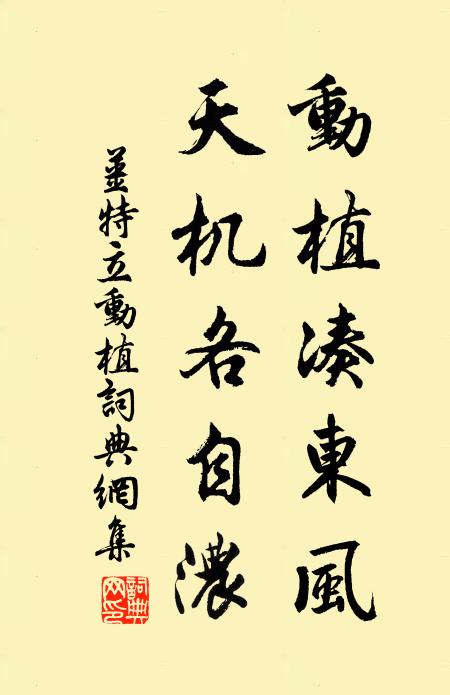 動植湊東風
天机各自濃
姜特立動植詞典網集
詞典网印